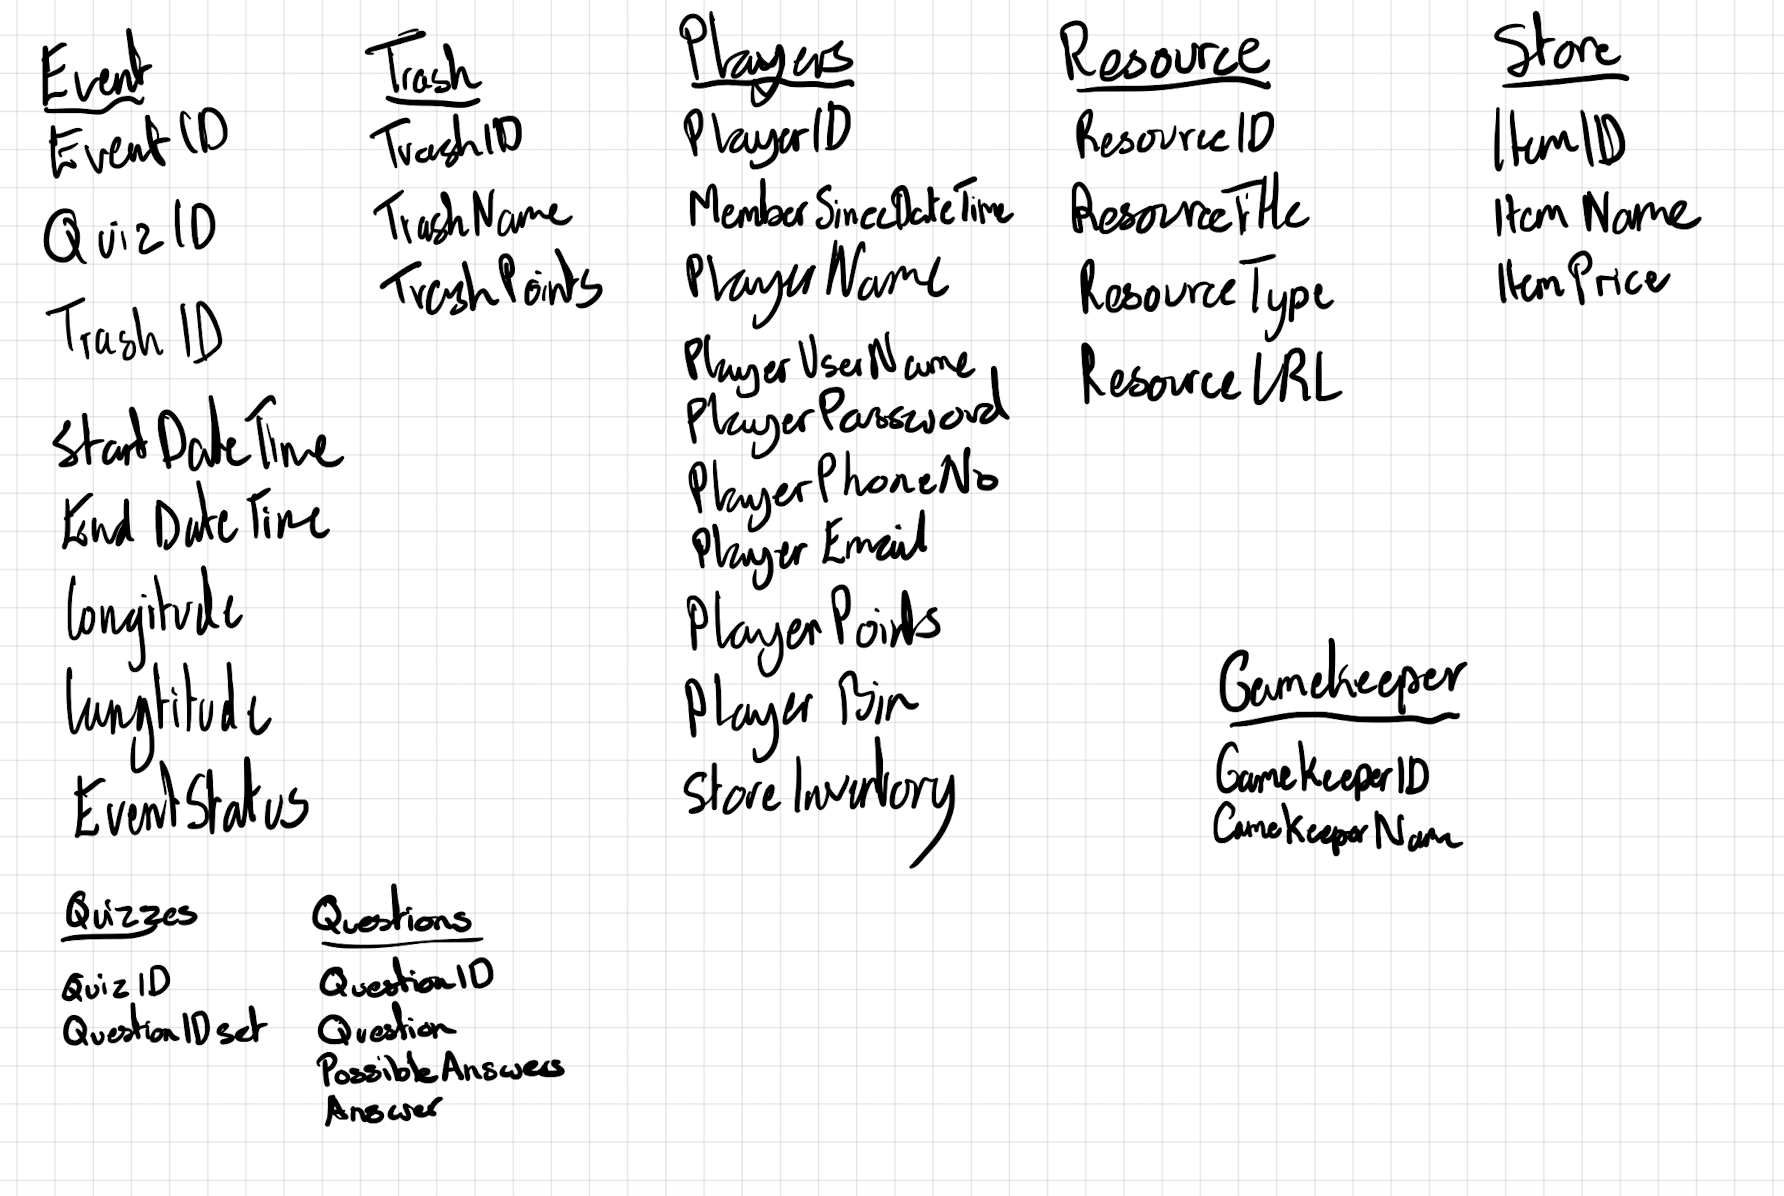 Event
EventID
QuizID
Trash ID
StartDateTime
End DateTime
Longitude
Langtitude
EventStatus
Trash
TrashID
TrashName
TrashPoints
Players
PlayerID
MemberSinceDateTime
PlayerName
PlayerUserName
PlayerPassword
PlayerPhoneNo
Player Email
PlayerPoints
Player Bin
StoreInventory
Resource
ResourceID
ResourceTitle
ResourceType
ResourceURL
Store
ItemID
Item Name
ItemPrice
Gamekeeper
GamekeeperID
GamekeeperName
Quizzes
QuizID
QuestionIDset
Questions
QuestionID
Question
PossibleAnswers
Answer